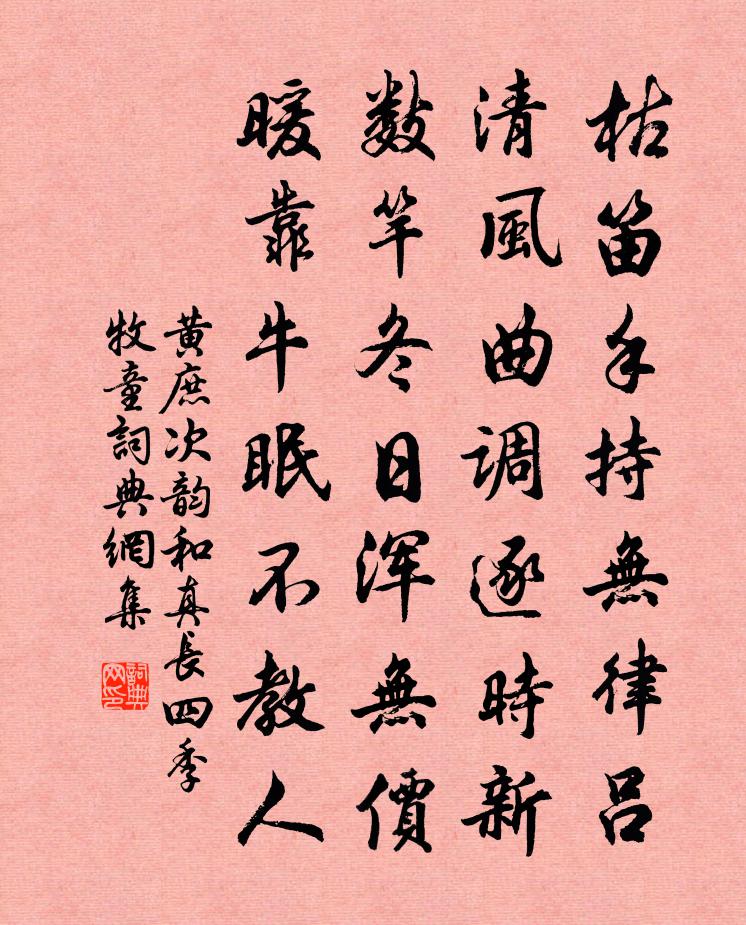 枯笛手持無律呂
清風曲调逐時新
数竿冬日浑無價
暖靠牛眠不教人
黄庶次韵和真長四季
牧童詞典網集
詞典网印